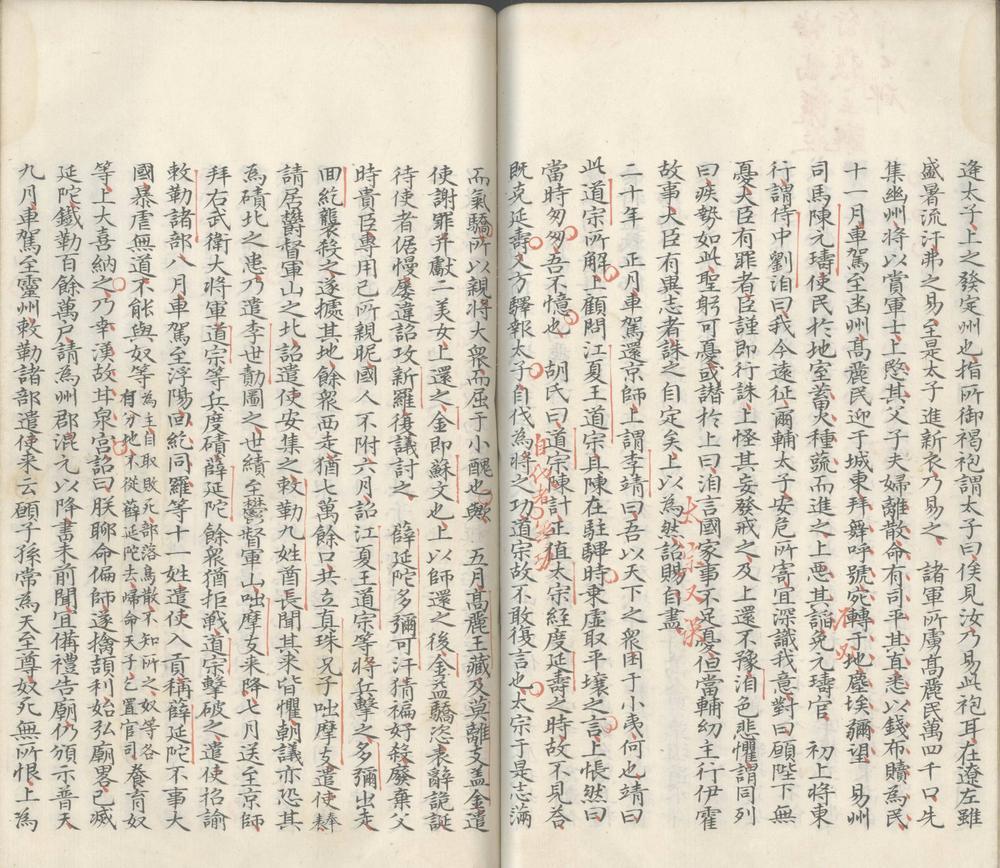 逢太子上之發定州也指所御褐袍謂太子曰俟見汝乃易此袍耳在遼左雖
盛暑流汗弗之易至是太子進新衣乃易之　諸軍所虜高麗民萬四千口先
集幽州將以賞軍士上愍其父子夫婦離散命有司平其直悉以錢布贖為民
十一月車駕至幽州高麗民迎于城東拜舞呼號宛轉于地塵埃彌望　易州
司馬陳元璹使民於地室蓄火種蔬而進之上惡其諂免元璹官　初上將東
行謂侍中劉洎曰我今遠征爾輔太子安危所寄宜深識我意對曰願陛下無
憂大臣有罪者臣謹即行誅上怪其妄發戒之及上還不豫洎色悲懼謂同列
曰疾勢如此聖躬可憂或譖於上曰洎言國家事不足憂但當輔幼主行伊霍
故事大臣有異志者誅之自定矣上以為然詔賜自盡
二十年　正月車駕還京師上謂李靖曰吾以天下之衆困于小夷何也靖曰
此道宗所解上顧問江夏王道宗具陳在駐驆時乘虛取平壤之言上悵然曰
當時匆匆吾不憶也　胡氏曰道宗陳計正值太宗經度延壽之時故不見荅
既克延壽又方驛報太子自伐為將之功道宗故不敢復言也太宗于是志滿
而氣驕所以親將大衆而屈于小醜也與　五月高麗王藏及莫離支盖金遣
使謝罪并獻二美女上還之金即蘇文也上以師還之後金益驕恣表辭詭誕
待使者倨慢屢違詔攻新羅復議討之　薛延陀多彌可汗猜褊好殺廢棄父
時貴臣專用己所親昵國人不附六月詔江夏王道宗等將兵擊之多彌出走
回紇襲殺之遂據其地餘衆西走猶七萬餘口共立真珠兄子咄摩支遣使奉表
請居鬱督軍山之北詔遣使安集之敕勒九姓酋長聞其來皆懼朝議亦恐其
為磧北之患乃遣李世勣圖之世績至鬱督軍山咄摩支來降七月送至京師
拜右武衛大將軍道宗等兵度磧薛延陀餘衆猶拒戰道宗擊破之遣使招諭
敕勒諸部八月車駕至浮陽回紇同羅等十一姓遣使入貢稱薛延陀不事大
國暴虐無道不能與奴等為主自取敗死部落鳥散不知所之奴等各有分地不從薛延陀去歸命天子乞置官司養育奴
等上大喜納之乃幸漢故甘泉宮詔曰朕聊命偏師遂擒頡利始弘廟畧已滅
延陀鐵勒百餘萬戶請為州郡混元以降書未前聞宜備禮告廟仍頒示普天
九月車駕至靈州敕勒諸部遣使來云願子孫常為天至尊奴死無所恨上為